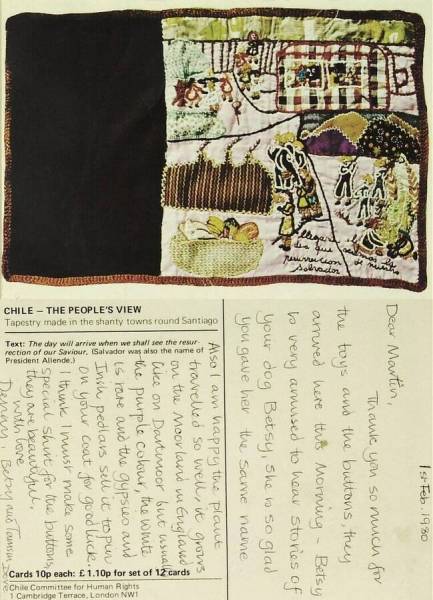 llegara
dia que
resurreccion
Salvador
CHILE – THE PEOPLE'S VIEW
Tapestry made in the shanty towns round Santiago
Text: The day will arrive when we shall see the resur-
rection of our Saviour, (Salvador was also the name of
President Allende.)
Cards 10p each: £1.10p for set of 12 cards
Chile Committee for Human Rights
1 Cambridge Terrace, London NW1
1st Feb. 1980
Dear Martin,
Thank you so much for
the toys and the buttons, they
arrived here this Morning – Betsy
is very amused to hear stories of
your dog Betsy, she is so glad
you gave her the same name
Also I am happy the plant
travelled so well, it grows
on the Moorland in England
like on Dartmoor but usually
the purple colour, the white
is rare and the gypsies and
Irish pedlars sell it to pin
on your coat for good luck.
I think I must make some
special shirt for the buttons,
they are beautiful,
with love
Betsy and Tamsin